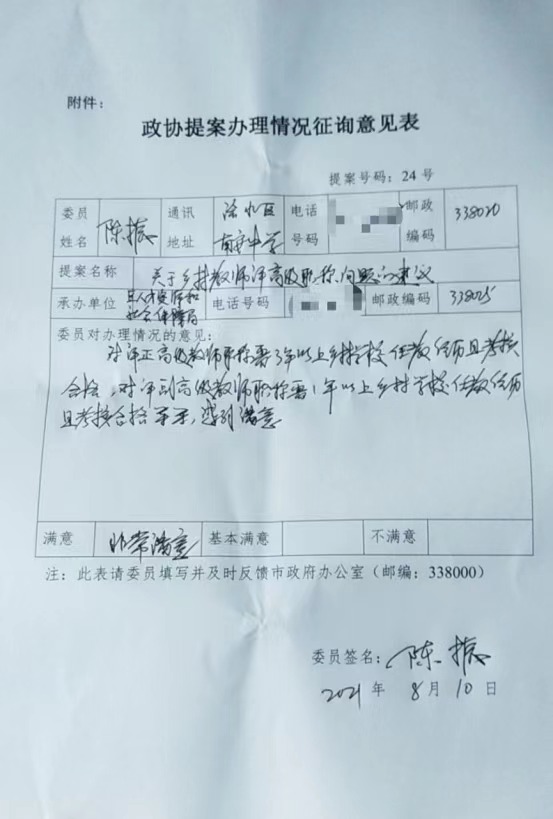 附件：
政协提案办理情况征询意见表
提案号码：24号
委员姓名 陈振 通讯地址 渝水区南安中学 电话号码 邮政编码 338020
提案名称 关于乡村教师评高级职称问题的建议
承办单位 县人力资源和社会保障局 电话号码 邮政编码 338025
委员对办理情况的意见：
对评正高级教师职称需3年以上乡村学校任教经历且考核
合格，对评副高级教师职称需1年以上乡村学校任教经历
且考核合格，感到满意
满意 非常满意 基本满意 不满意
注：此表请委员填写并及时反馈市政府办公室（邮编：338000）
委员签名：陈振
2021年8月10日